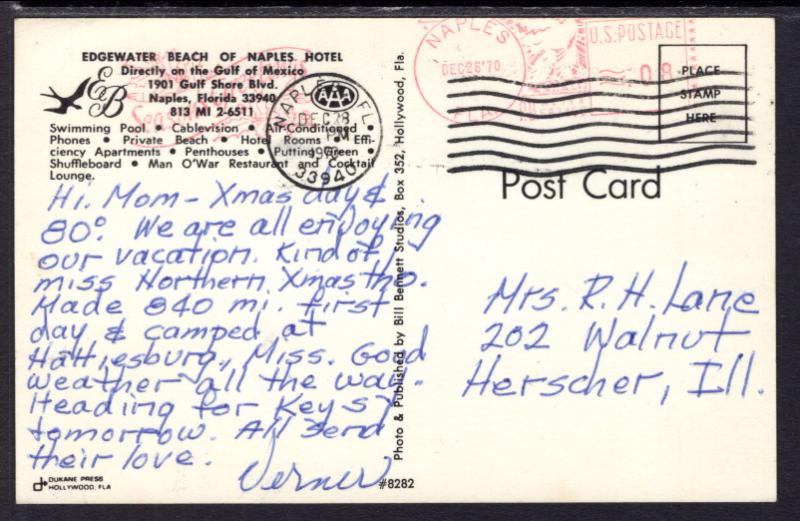 EDGEWATER BEACH OF NAPLES HOTEL
Directly on the Gulf of Mexico
1901 Gulf Shore Blvd.
Naples, Florida 33940
813 MI 2-6511
EB
Swimming Pool • Cablevision • Air-Conditioned •
Phones • Private Beach • Hotel Rooms • Effi-
ciency Apartments • Penthouses • Putting Green •
Shuffleboard • Man O'War Restaurant and Cocktail
Lounge.
Hi Mom - Xmas day &
80°. We are all enjoying
our vacation. Kind of
miss Northern Xmas tho.
Made 840 mi. first
day & camped at
Hattiesburg, Miss. Good
weather all the way.
Heading for Keys
tomorrow. All send
their love.
Verner
DUKANE PRESS
HOLLYWOOD, FLA
#8282
Photo & Published by Bill Bennett Studios, Box 352, Hollywood, Fla.
NAPLES, FL
AAA
DEC 28
PM
1970
33940
NAPLES
DEC 28 '70
FLA
U.S. POSTAGE
.08
PLACE
STAMP
HERE
Post Card
Mrs. R. H. Lane
202 Walnut
Herscher, Ill.